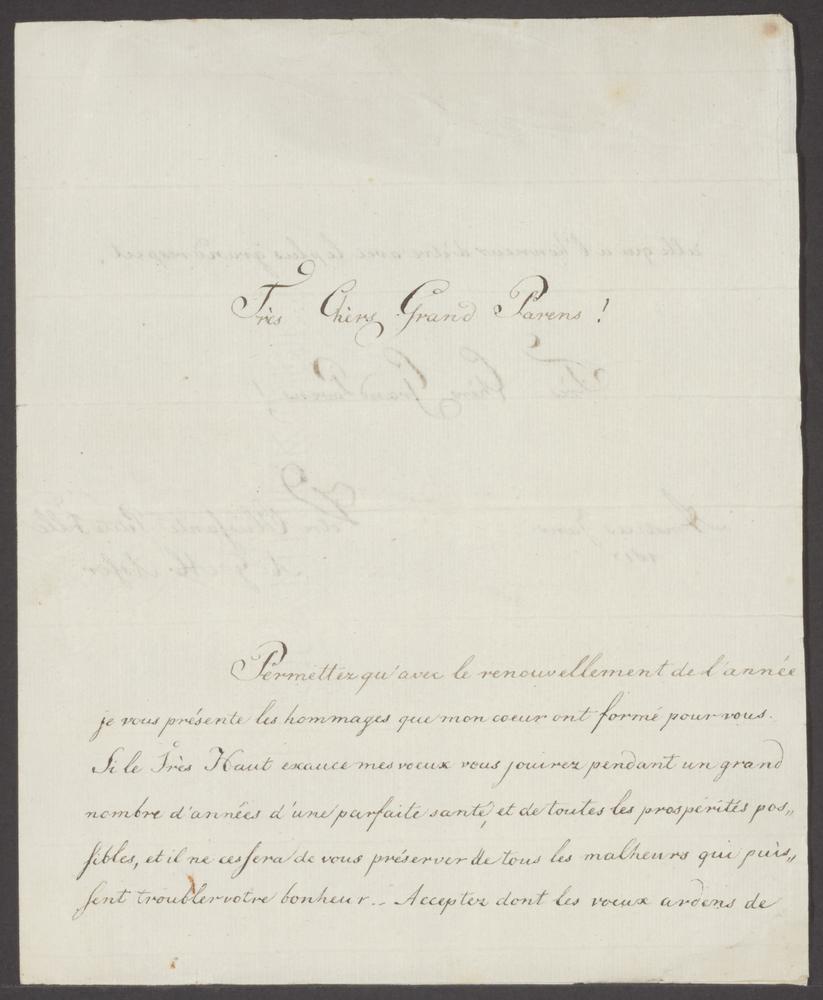 Très Chers Grand Parens !
Permettez qu'avec le renouvellement de l'année
je vous présente les hommages que mon coeur ont formé pour vous.
Si le Très Haut exauce mes voeux vous jouirez pendant un grand
nombre d'années d'une parfaite santé, et de toutes les prospérités pos„
sibles, et il ne cessera de vous préserver de tous les malheurs qui puis„
sent troubler votre bonheur.. Acceptez dont les voeux ardens de